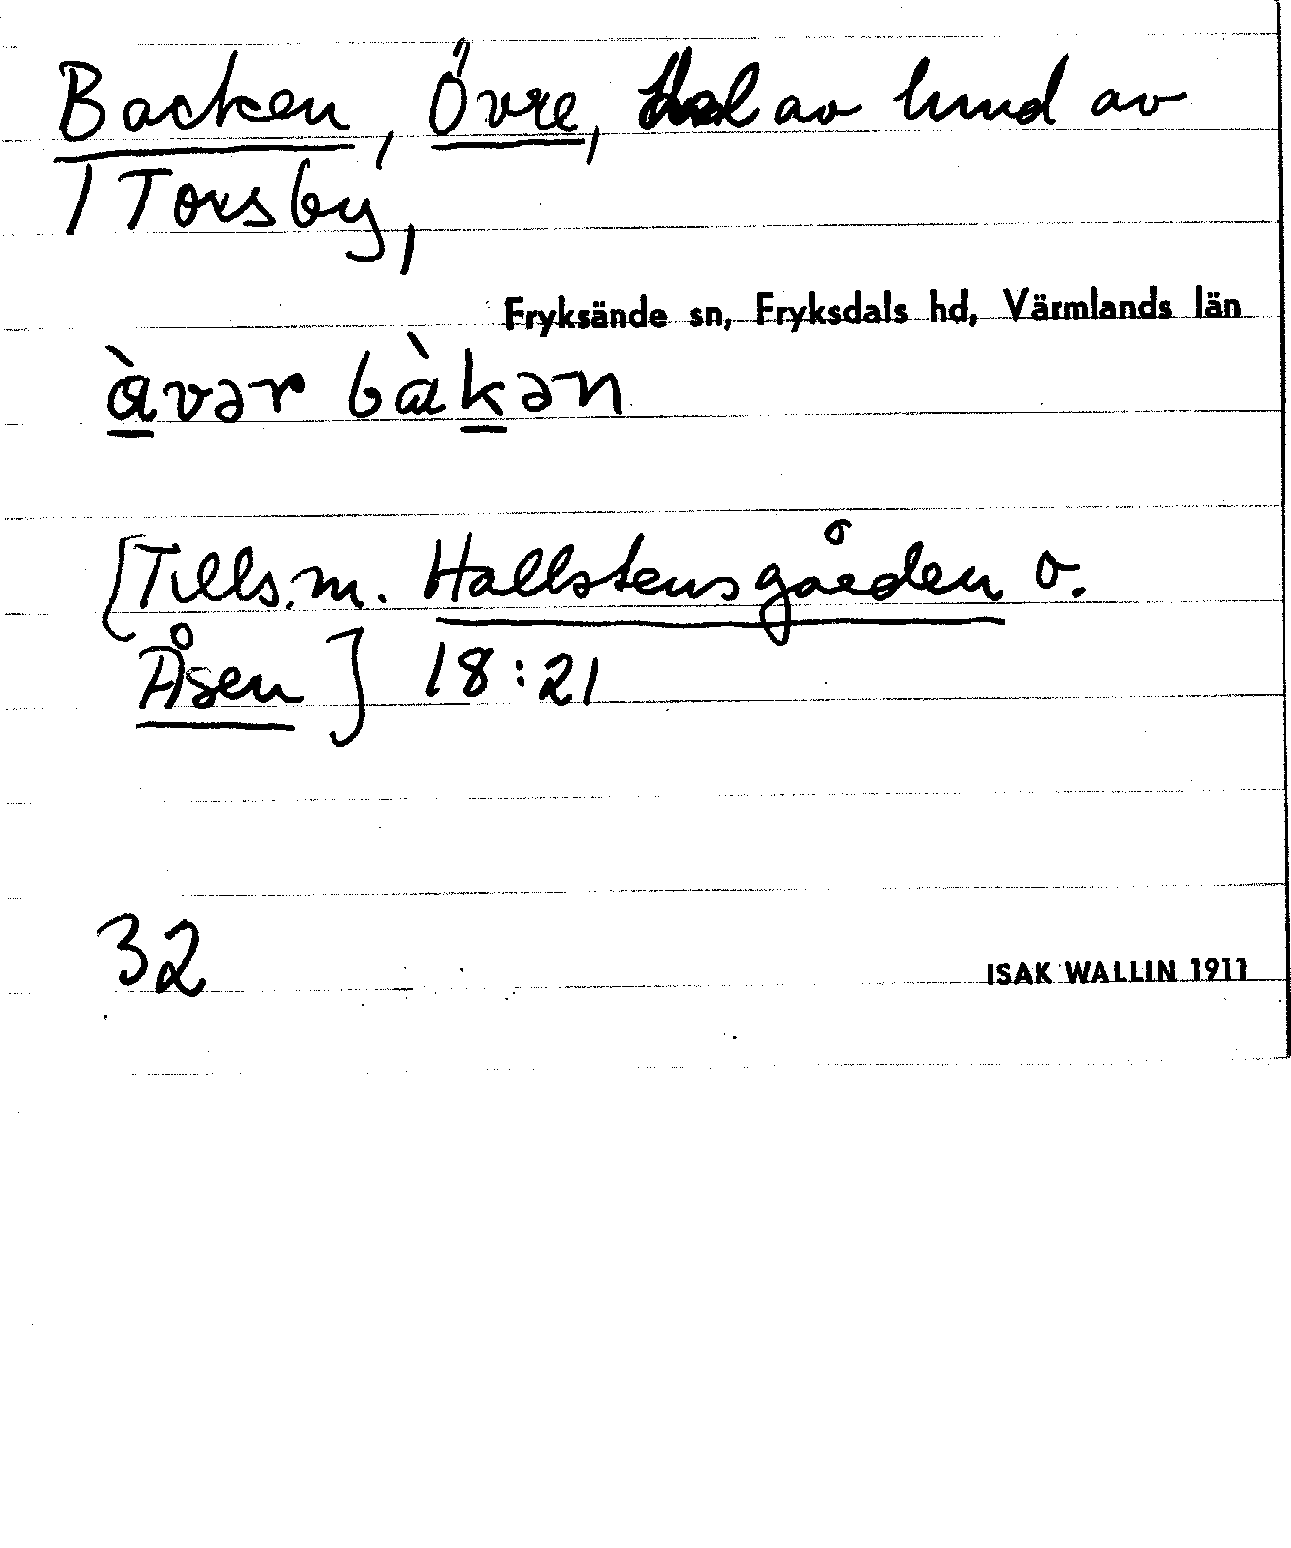 Backen, Övre, del av hmd av
1 Torsby,
Fryksände sn, Fryksdals hd, Värmlands län
àvər bàkən
[Tills.m. Hallstensgården o.
Åsen] 18:21
32
ISAK WALLIN 1911